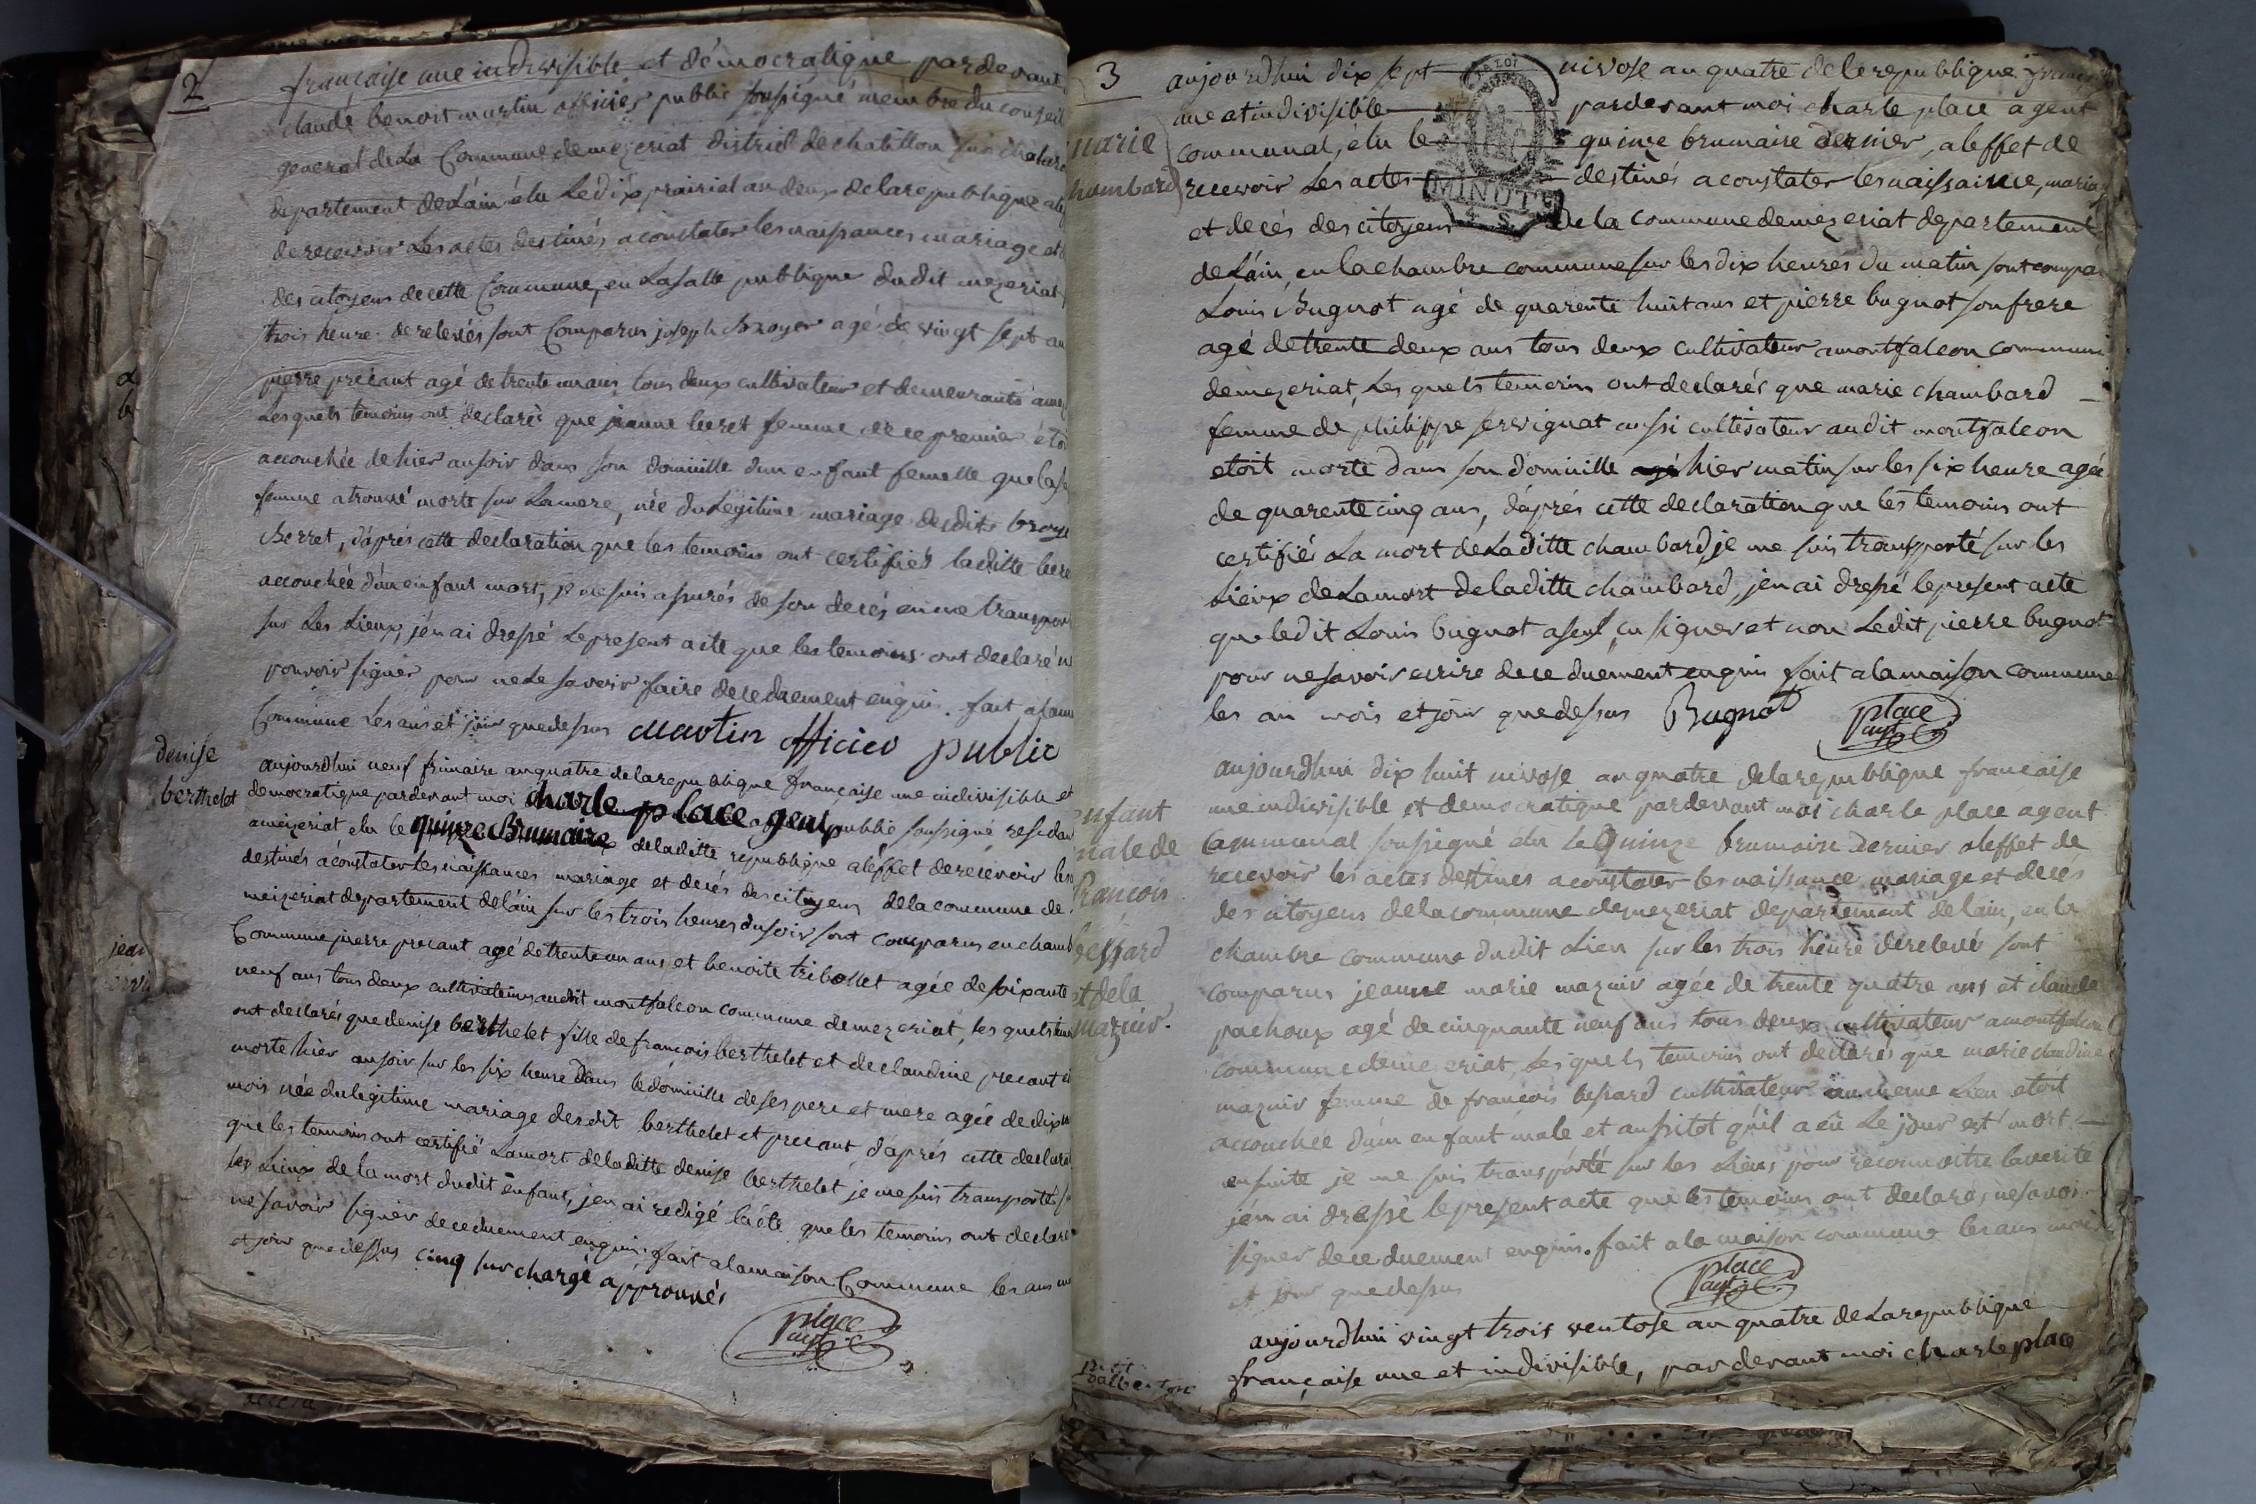 2
française une indivisible et démocratique pardevant
claude benoit martin officier public soussigné membre du conseil
general de La Commune de mezeriat district de chatillon sur chalar
departement de Láin élu Le dix prairial an deux de la republique
de recevoir Les actes destinés a constater les naissances mariage et
des citoyens de cette Commune, en La salle publique dudit mezeriat
trois heure de relevés sont Comparus joseph Broyer agé de vingt sept an
pierre precant agé de trente un ans tous deux cultivateur et demeurants
Lesquels temoins ont declarés que jeanne beret femme de ce premier étoi
accouchée de hier au soir dans son domicille d'un enfant femelle que
femme a trouvé morte sur La mere, née du Legitime mariage desdits broye
Berret, d'áprés cette declaration que les temoins ont certifiés laditte bere
accouchée d'un enfant mort, je me suis assurés de son decés en me transpor
sur Les Lieux, j'en ai dressé Le present acte que les temoins ont declaré n
pouvoir signer pour ne Le savoir faire de ce duement enquis. fait a la m
Commune Les ans et jour que dessus Martin officier public
denise
berthelet
aujourdhui neuf frimaire an quatre de la republique française une indivisible et
democratique pardevant moi charle place agent public soussigné residan
a meizeriat elu le quinze Brumaire de laditte republique a léffet de recevoir les
destinés a constater les naissances mariage et decés des citoyens de la commune de
meizeriat departement de láin sur les trois heures du soir sont comparus en chamb
Commune pierre precant agé de trente un ans et benoite tribollet agée de soixante
neuf ans tous deux cultivateurs audit montfalcon commune de mezeriat, les quels tem
ont declarés que denise berthelet fille de francois berthelet et de claudine precant
morte hier au soir sur les six heure dans le domicille de ses pere et mere agée de dix
mois née du legitime mariage desdit berthelet et precant d'áprés cette declara
que les temoins ont certifié La mort de laditte denise berthelet je me suis transportés
les Lieux de la mort dudit enfant, j'en ai redigé lácte que les temoins ont declare
ne savoir signer de ce duement enquis. fait a la maison Commune les ans
et jour que dessus cinq surchargé approuvés
place
agt
3
marie
chambard
MINUTE
aujourdhui dix sept nivose an quatre de la republique franc
une et indivisible pardevant moi charle place agent
communal, élu le quinze brumaire dernier, a leffet de
recevoir Les actes destinés a constater les naissaince, mariag
et decés des citoyens de la commune de mezeriat departement
de Láin, en la chambre commune sur les dix heures du matin sont compar
Louis Bugnot agé de quarente huit ans et pierre bugnot son frere
agé de trente deux ans tous deux cultivateur a montfalcon commune
de mezeriat, Les quels temoins ont declarés que marie chambard
femme de philippe servignat aussi cultivateur audit montfalcon
etoit morte dans son domicille agé hier matin sur les six heure agée
de quarente cinq ans, d'áprés cette declaration que les temoins ont
certifiés La mort de Laditte chambard, je me suis transporté sur les
Lieux de La mort de laditte chambard, j'en ai dressé le present acte
que ledit Louis bugnot a seul su signer et non Ledit pierre bugnot
pour ne savoir ecrire de ce duement enquis fait a la maison commune
les an mois et jour que dessus Bugnot place
agt
enfant
male de
francois
bessard
et de la
mazuir.
aujourdhui dix huit nivose an quatre de la republique francaise
une indivisible et democratique pardevant moi charle place agent
Communal soussigné élu le Quinze brumaire dernier a leffet de
recevoir les actes destines a constater les naissance mariage et decés
des citoyens de la commune de mezeriat departement de lain, en la
chambre commune dudit Lieu sur les trois heure de relevé sont
comparus jeanne marie mazuir agée de trente quatre ans et claude
pachoux agé de cinquante neuf ans tous deux cultivateur a montfalcon
commune de mezeriat, Les quels temoins ont declarés que marie claudine
mazuir femme de francois bessard cultivateur au meme Lieu etoit
accouchée d'un enfant male et aussitot qu'il a eû Le jour est mort
ensuite je me suis transporté sur les Lieux pour reconnoitre la verité
j'en ai dressé le present acte que les temoins ont declarés ne savoir
signer de ce duement enquis. fait a la maison commune les ans mois
et jour que dessus
place
agt
aujourdhui vingt trois ventose an quatre de La republique
française une et indivisible, pardevant moi charle place